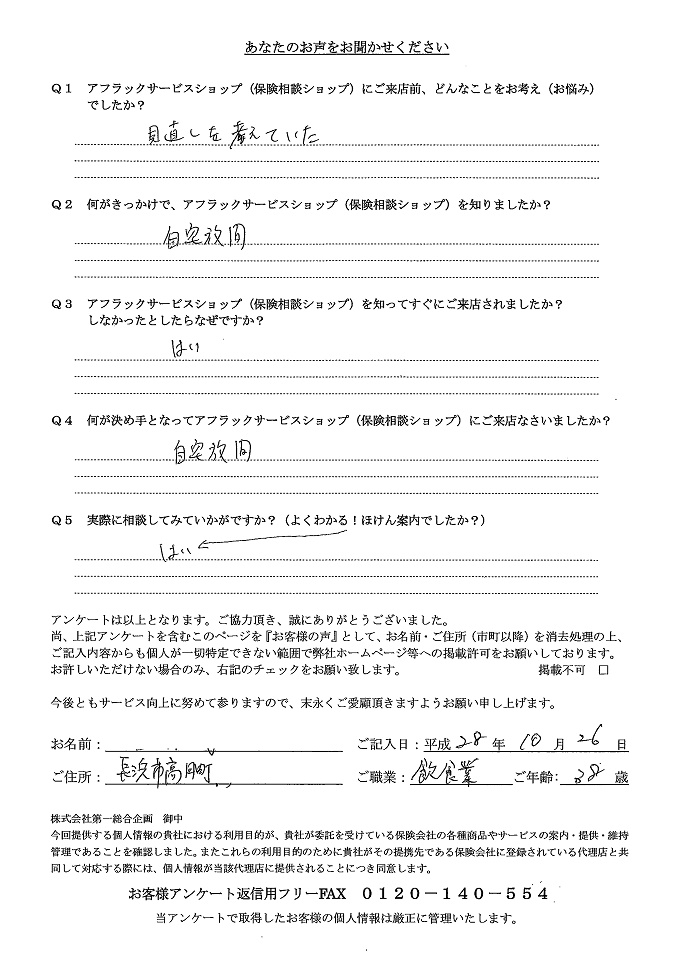 あなたのお声をお聞かせください
Q1 アフラックサービスショップ（保険相談ショップ）にご来店前、どんなことをお考え（お悩み）
でしたか？
見直しを考えていた
Q2 何がきっかけで、アフラックサービスショップ（保険相談ショップ）を知りましたか？
自宅放問
Q3 アフラックサービスショップ（保険相談ショップ）を知ってすぐにご来店されましたか？
しなかったとしたらなぜですか？
はい
Q4 何が決め手となってアフラックサービスショップ（保険相談ショップ）にご来店なさいましたか？
自宅放問
Q5 実際に相談してみていかがですか？（よくわかる！ほけん案内でしたか？）
はい
アンケートは以上となります。ご協力頂き、誠にありがとうございました。
尚、上記アンケートを含むこのページを『お客様の声』として、お名前・ご住所（市町以降）を消去処理の上、
ご記入内容からも個人が一切特定できない範囲で弊社ホームページ等への掲載許可をお願いしております。
お許しいただけない場合のみ、右記のチェックをお願い致します。 掲載不可 □
今後ともサービス向上に努めて参りますので、末永くご愛顧頂きますようお願い申し上げます。
お名前： ご記入日：平成 28 年 10 月 26 日
ご住所： 長浜市高月町 ご職業： 飲食業 ご年齢： 38 歳
株式会社第一総合企画 御中
今回提供する個人情報の貴社における利用目的が、貴社が委託を受けている保険会社の各種商品やサービスの案内・提供・維持
管理であることを確認しました。またこれらの利用目的のために貴社がその提携先である保険会社に登録されている代理店と共
同して対応する際には、個人情報が当該代理店に提供されることにつき同意します。
お客様アンケート返信用フリーFAX 0120－140－554
当アンケートで取得したお客様の個人情報は厳正に管理いたします。